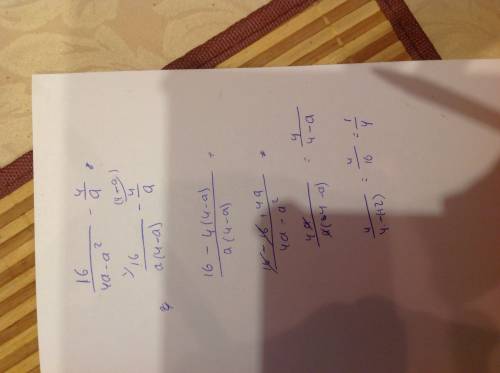 16/(4a-a²) - 4/a =
16/(a(4-a)) - 4/a (4-a)
(16-4(4-a))/(a(4-a)) =
(16-16+4a)/(4a-a²) =
4a/(a(4-a)) = 4/(4-a)
4/(4-(12)) = 4/16 = 1/4